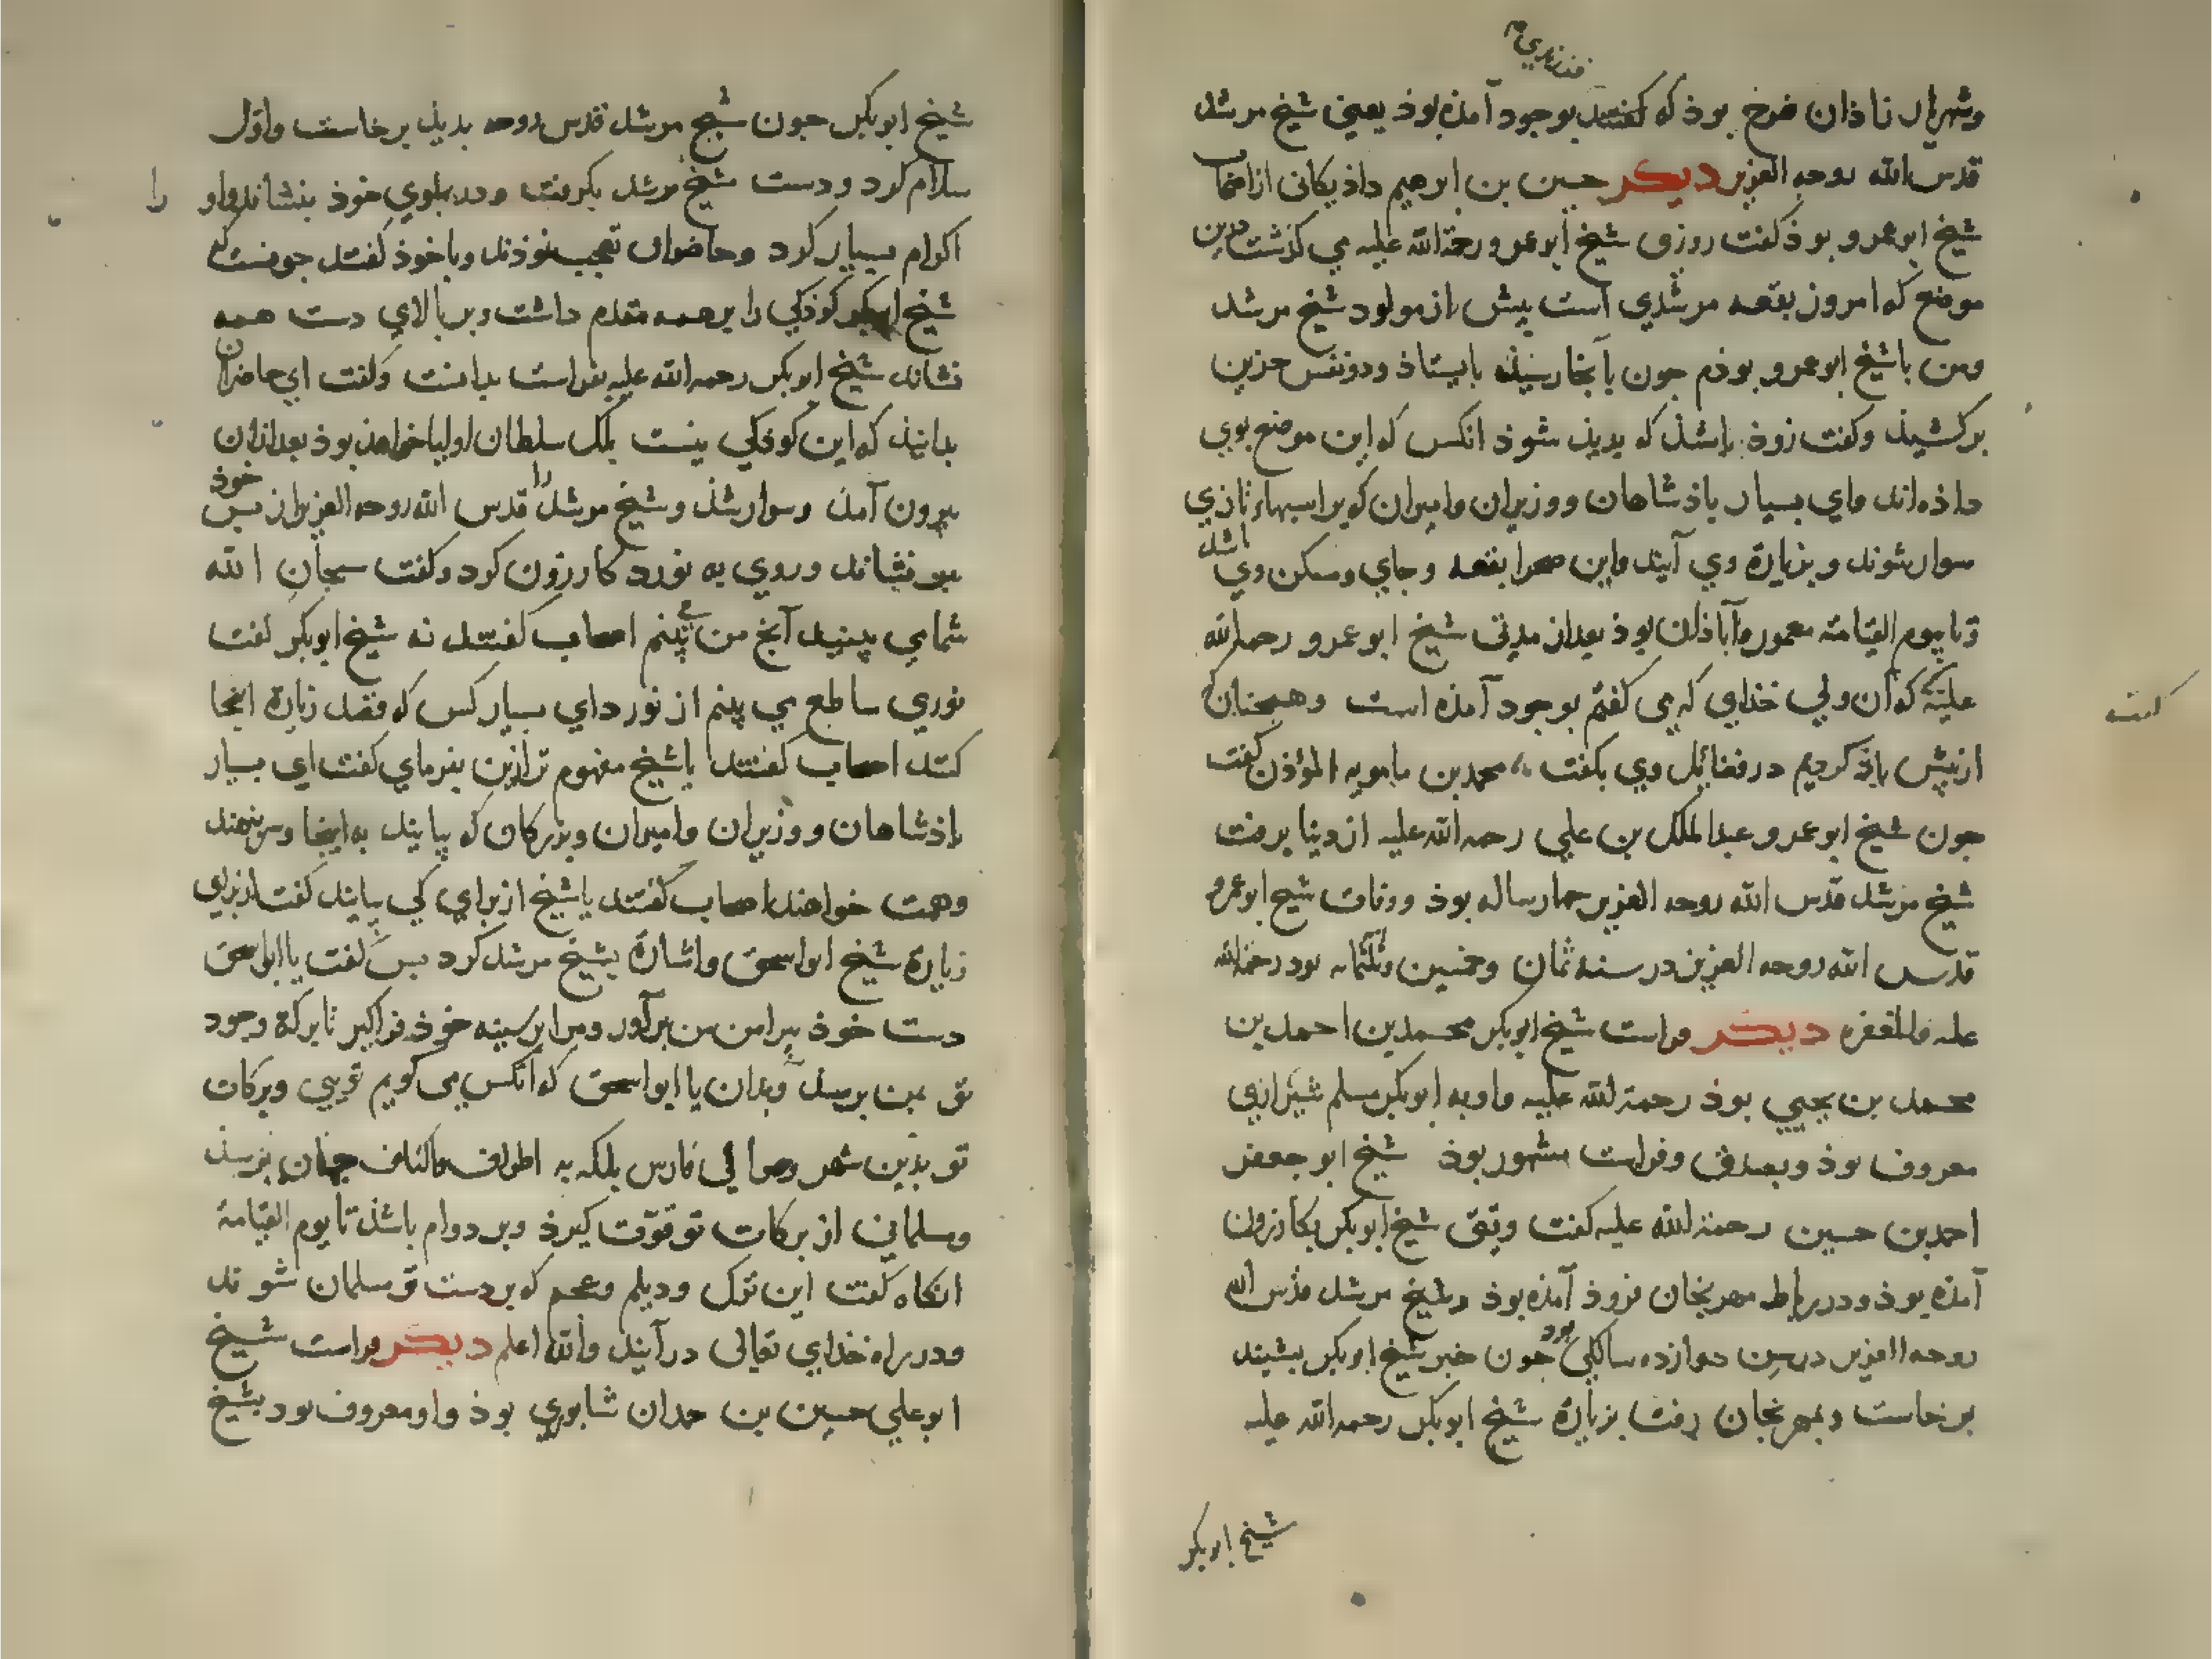 فرزندي م
وشهریار نا ذان فرخ بوذ که کفتند بوجود آمذه بوذ یعنی شیخ مرشد
قدس الله روحه العزیز دیکر حسین بن ابرهیم داذیکانی از اصحاب
شیخ ابوعمرو بوذ کفت روزی شیخ ابوعمرو رحمة الله علیه می کذشت درین
موضع که امروز بقعه مرشدي است پیش از مولود شیخ مرشد
ومن باشیخ ابوعمرو بوذم جون بآنجا رسیذ بایستاذ ودو نفس حزین
برکشیذ وکفت زوذ باشذ که بدیذ شوذ انکس که این موضع بوي
داذه اند واي بسیار باذشاهان ووزیران وامیران که بر اسبهاء تازي
سوار شوند وبزیارة وي آیند واین صحرا بقعه وجاي ومسکن وي باشد
وتا یوم القیامة معمور وآباذان بوذ بعد از مدتی شیخ ابو عمرو رحمة الله
علیه کفت که آن ولي خذاي که می کفتم بوجود آمذه است وهمجنان که
از پیش یاذ کردیم در فضائل وي بکفت محمد بن مامویه المؤذن کفت
جون شیخ ابوعمرو عبد الملک بن علي رحمه الله علیه از دنیا برفت
شیخ مرشد قدس الله روحه العزیز جهارساله بوذ ووفات شیخ ابوعمرو
قدس الله روحه العزیز در سنه ثمان وخمسین وثلثمائه بود رحمة الله
علیه والمغفره دیکر فراست شیخ ابوبکر محمد بن احمد بن
محمد بن یحیي بوذ رحمة الله علیه واوبه ابوبکر مسلم شیرازي
معروف بوذ وبصدق وفراست مشهور بوذ شیخ ابو جعفر
احمد بن حسین رحمة الله علیه کفت وقتی شیخ ابوبکر بکازرون
آمذه بوذ ودر رباط مهرنجان فروذ آمذه بوذ وشیخ مرشد قدس الله
روحه العزیز در سن دوازده سالکی بود جون خبر شیخ ابوبکر بشنید
برخاست وبمهرنجان رفت بزیارة شیخ ابوبکر رحمه الله علیه
شیخ ابوبکر
شیخ ابوبکر جون شیخ مرشد قدس روحه بدیذ برخاست واول
سلام کرد ودست شیخ مرشد بکرفت ودر بهلوي خوذ بنشاند واو را
اکرام بسیار کرد وحاضران تعجب نموذند وباخوذ کفتند جونست که
شیخ ابوبکر کوذکي را بر همه مقدم داشت وبر بالاي دست همه
نشاند شیخ ابوبکر رحمه الله علیه بفراست بدانست وکفت اي حاضران
بدانیذ که این کوذکي نیست بلک سلطان اولیا خواهذ بوذ بعد از آن
بیرون آمذ وسوار شذ وشیخ مرشد را قدس الله روحه العزیز از بس خوذ
بر نشاند وروي به نورد کازرون کرد وکفت سبحان الله
شما می بینید آنج من می بینم اصحاب کفتند نه شیخ ابوبکر کفت
نوري ساطع می بینم از نورد واي بسیار کس که قصد زیارة اینجا
کنند اصحاب کفتند یا شیخ مفهوم تر ازین بفرماي کفت اي بسیار
باذشاهان ووزیران وامیران وبزرکان که بیایند به اینجا وسر بنهند
وهمت خواهند اصحاب کفتند یا شیخ از براي کي بیایند کفت از براي
زیارة شیخ ابواسحق واشارة بشیخ مرشد کرد بس کفت یا ابااسحق
دست خوذ بیرامن من برآور ومرا بر سینه خوذ فراکیر تا برکة وجود
تو بمن برسد وبدان یا ابواسحق که آنکس می کویم تویی وبرکات
تو بذین شهر وحوالی فارس بلکه به اطراف واکناف جهان برسذ
ومسلمانی از برکات تو قوت کیرذ وبر دوام باشذ تا یوم القیامة
انکاه کفت این ترک ودیلم وعجم که بر دست تو مسلمان شوند
ودر راه خذاي تعالی درآیند والله اعلم دیکر فراست شیخ
ابوعلي حسین بن حمدان شابوري بوذ واو معروف بود بشیخ